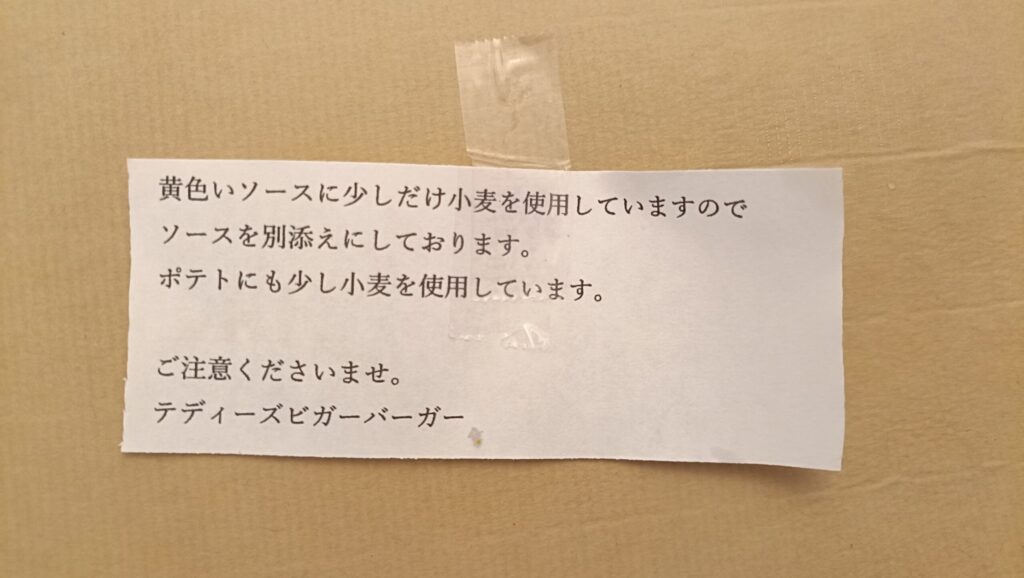 黄色いソースに少しだけ小麦を使用していますので
ソースを別添えにしております。
ポテトにも少し小麦を使用しています。
ご注意くださいませ。
テディーズビガーバーガー